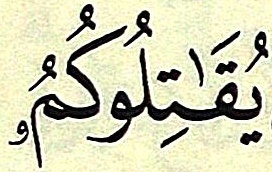 يُقَٰتِلُوكُمُۥ